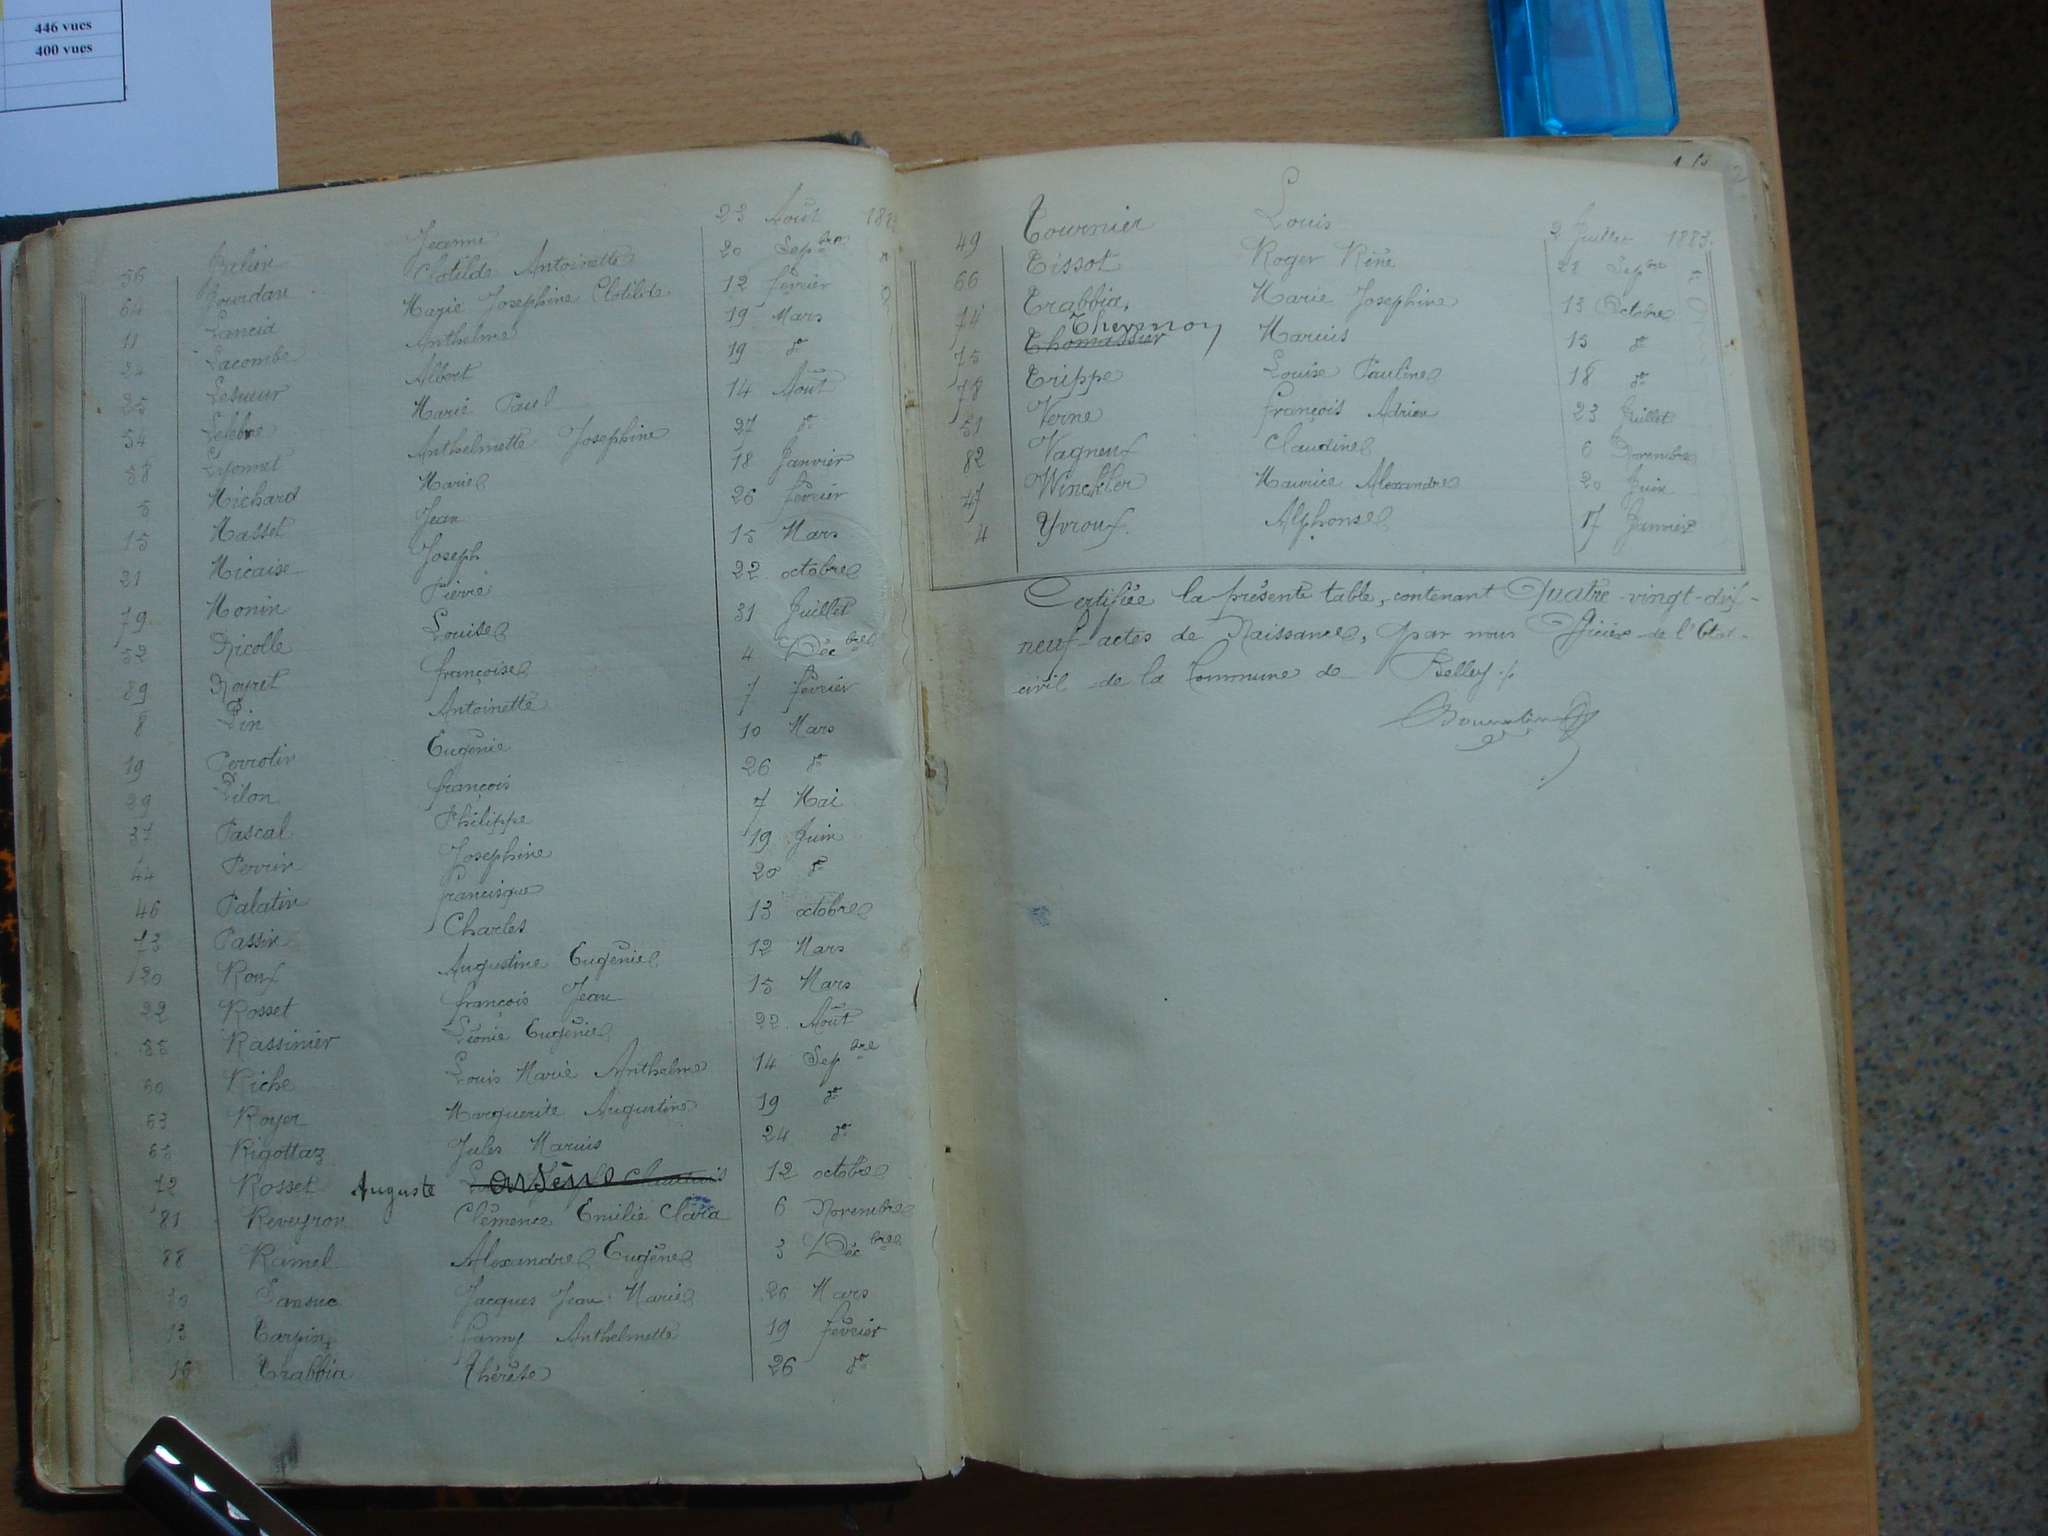 446 vues
400 vues
56 Jeanne 23 Août
64 Jourdan Clotilde Antoinette 20 Sepbre
11 Lancia Marie Josephine Clotilde 12 février
24 Lacombe Anthelme 19 Mars
25 Lesueur Albert 19 do
54 Marie Paul 14 Août
58 Lyonnet Anthelmette Josephine 27 do
5 Michard Marie 18 Janvier
15 Masset Jean 26 février
21 Micaise Joseph 15 Mars
79 Monin Pierre 22 octobre
52 Nicolle Louise 31 Juillet
89 Noyret françoise 4 Décbre
8 Pin Antoinette 7 février
19 Perrotin Eugénie 10 Mars
29 Pilon françois 26 do
37 Pascal Philippe 7 Mai
44 Perrin Josephine 19 Juin
46 Palatin francisque 20 do
73 Passin Charles 13 octobre
20 Roux Augustine Eugénie 12 Mars
22 Rosset françois Jean 15 Mars
55 Rassinier Léonie Eugénie 22 Août
60 Riche Louis Marie Anthelme 14 Sepbre
63 Royer Marguerite Augustine 19 do
65 Rigottaz Jules Marius 24 do
72 Rosset Auguste arsène 12 octobre
81 Reveyron Clémence Emilie Clara 6 Novembre
88 Ramel Alexandre Eugène 3 Décbre
30 Sansuc Jacques Jean Marie 26 Mars
13 Tarpin fanny Anthelmette 19 février
16 Trabbia Thérèse 26 do
49 Tournier Louis 2 Juillet 1883.
66 Tissot Roger Réné 21 Sepbre
74 Trabbia Marie Josephine 13 Octobre
Thevenon
75 Thomassier Marius 15 do
78 Trippe Louise Pauline 18 do
51 Verne françois Adrien 23 Juillet
82 Vagneux Claudine 6 Novembre
47 Winckler Maurice Alexandre 20 Juin
4 Yvroux Alphonse 17 Janvier
Certifiée la présente table, contenant Quatre-vingt-dix-
neuf actes de Naissance, par nous Officier de l'Etat-
civil de la Commune de Belley